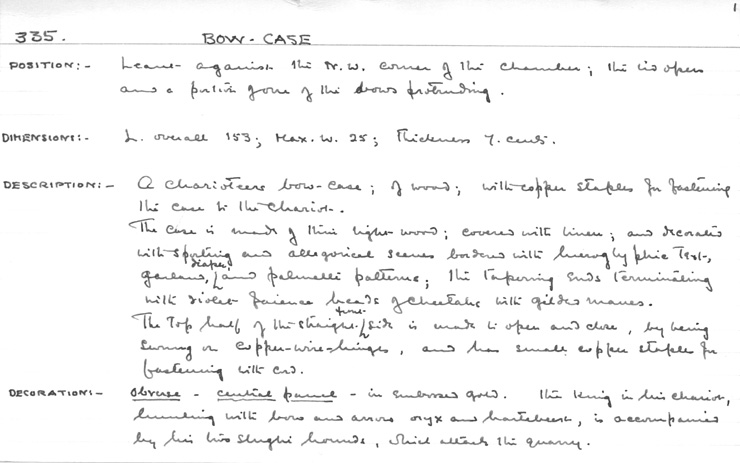 1
335. BOW-CASE
POSITION:- Leant against the N.W. corner of the chamber; the lid open
and a portion of one of the bows protruding.
DIMENSIONS:- L. overall 153; Max. w. 25; Thickness 7. cents.
DESCRIPTION:- A charioteers bow-case; of wood; with copper staples for fastening
the case to the chariot.
The case is made of thin light-wood; covered with linen; and decorated
with sporting and allegorical scenes bordered with hieroglyphic Text,
garland, diaper and palmette patterns; the tapering ends terminating
with violet faience heads of cheetahs with gilded manes.
The Top half of the straight-front side is made to open and close, by being
swung on copper-wire-hinges, and has small copper staples for
fastening with cord.
DECORATION:- Obverse - central panel - in embossed gold. The King in his chariot,
hunting with bow and arrows oryx and hartebeest, is accompanied
by his two slughi hounds, which attack the quarry.